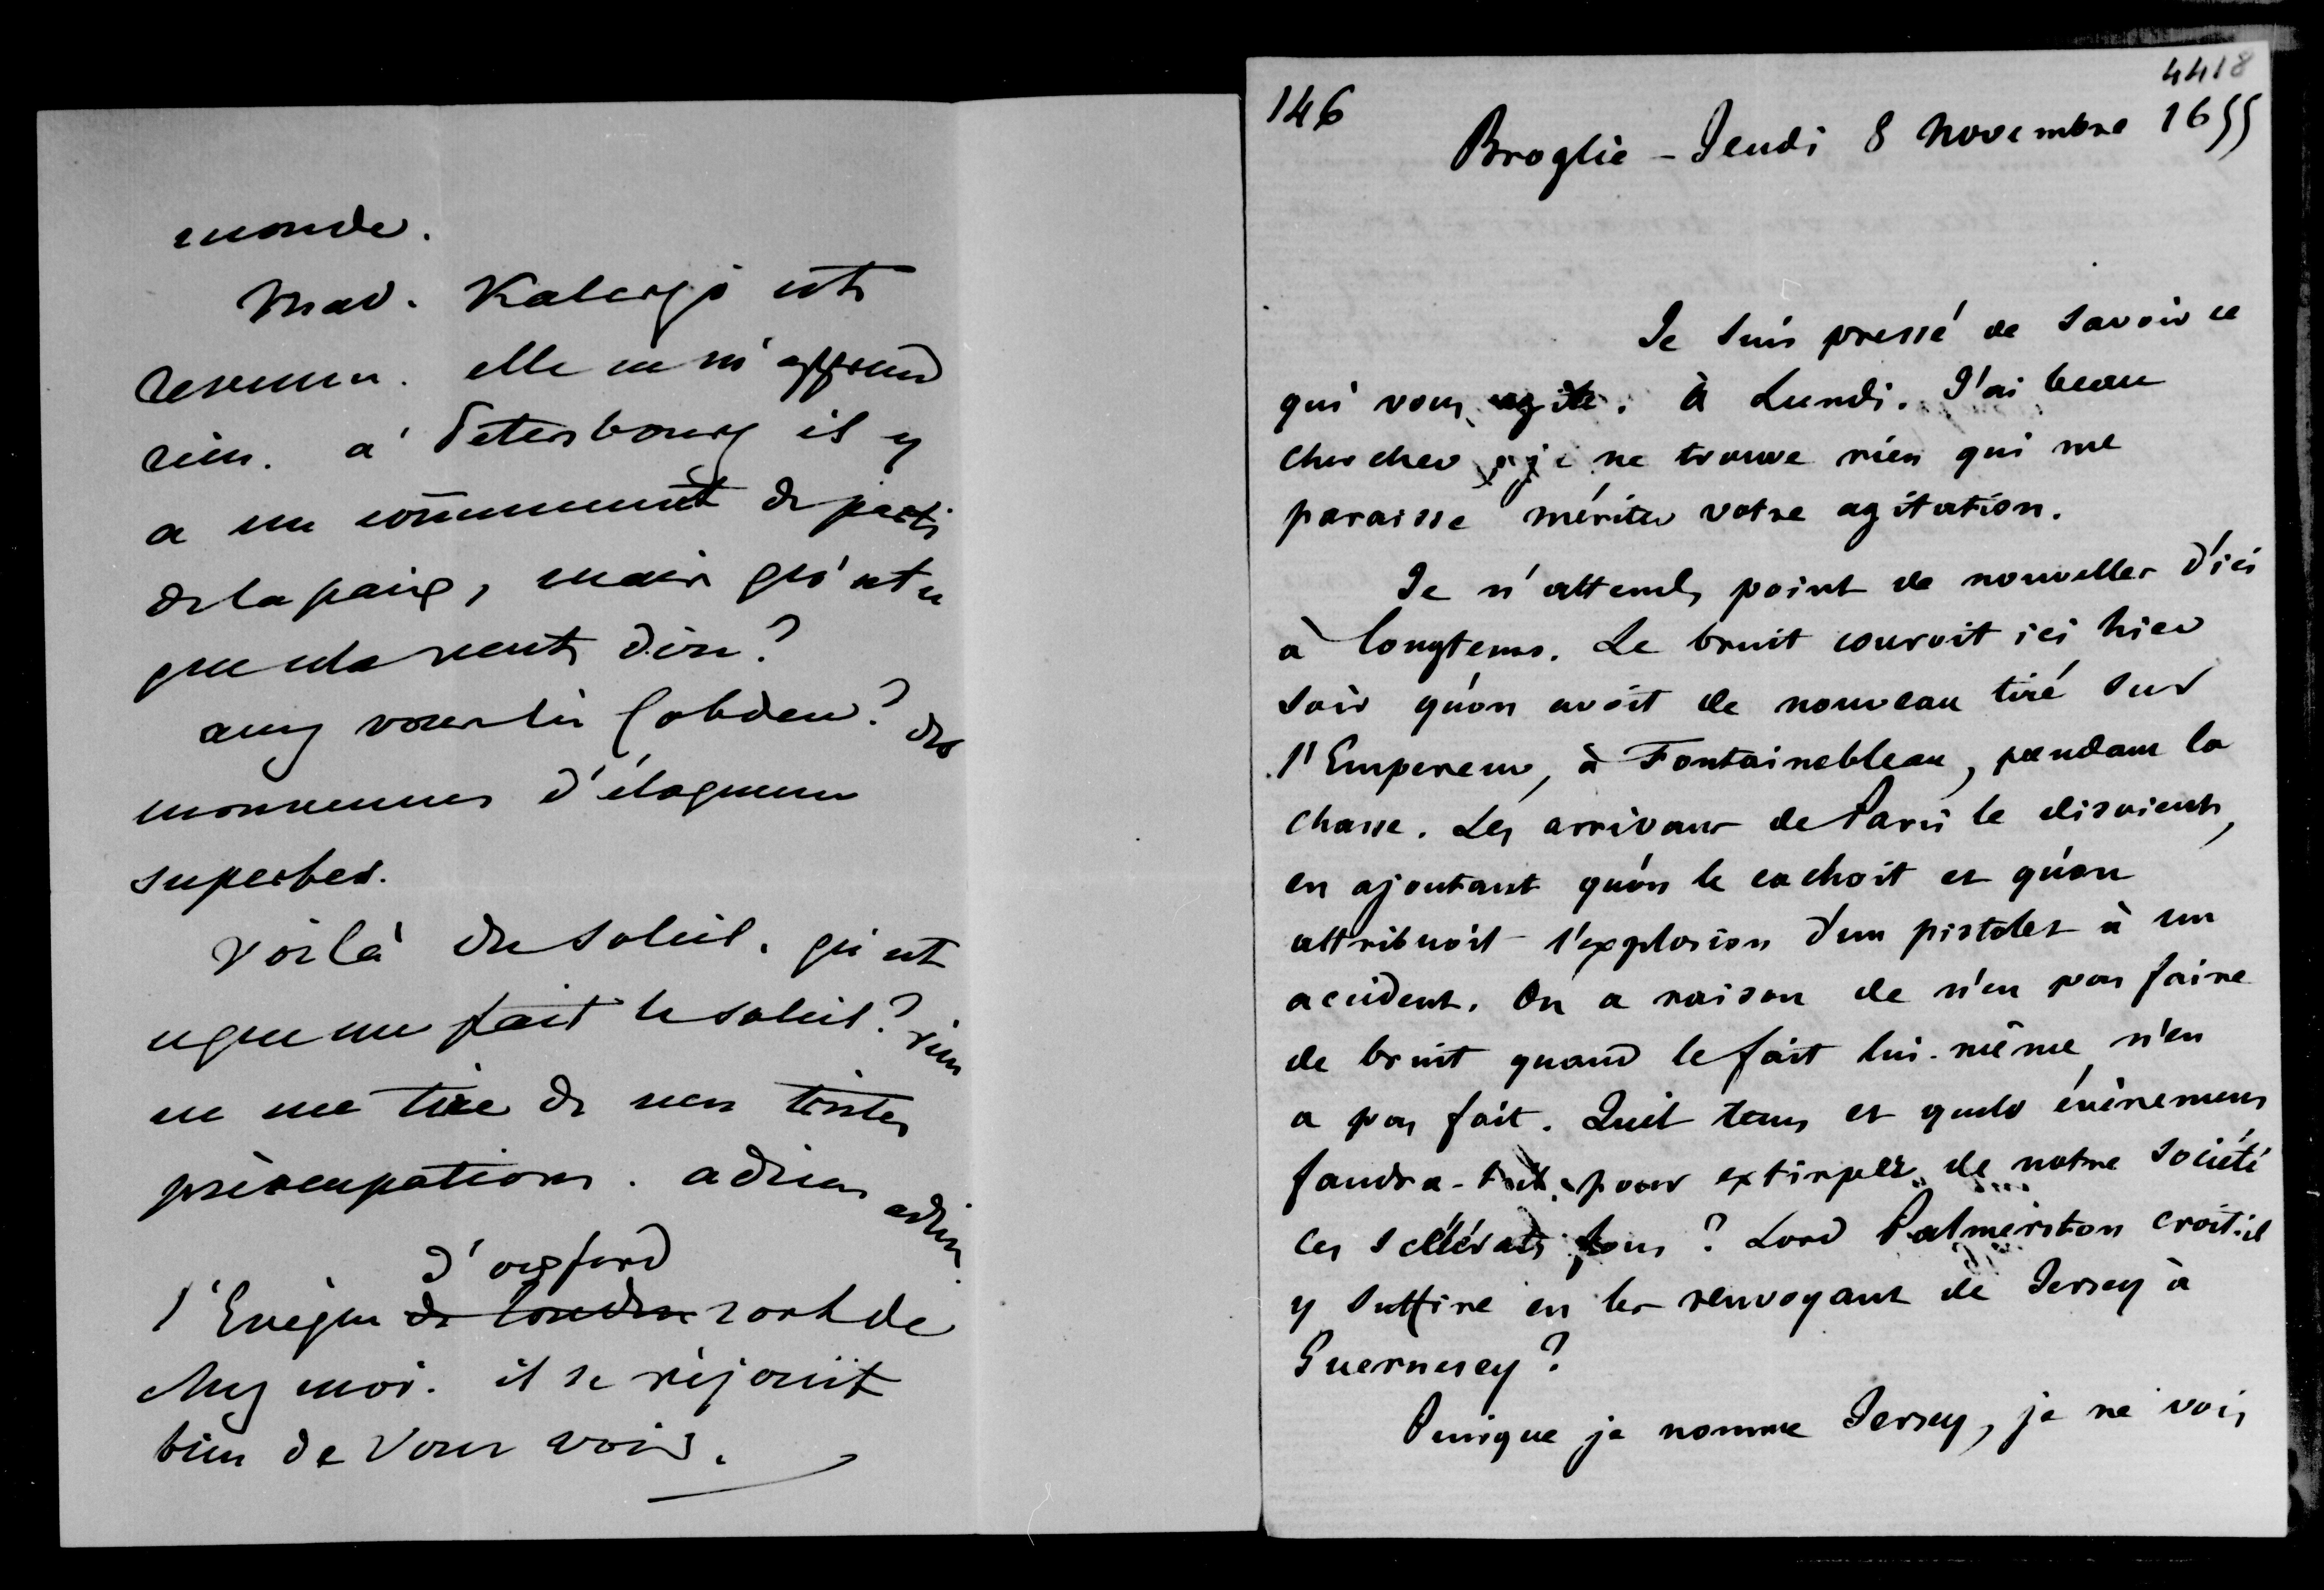 monde.
Mad. Kalergi est
revenue. elle ne m'apprend
rien. a' Petersbourg il y
a un commencement de parti
de la paix, mais qu'est ce
que cela veut dire?
avez vous lu Cobden? des
morceaux d'éloquence
superbes.
Voilà du soleil. qu'est
ce que me fait le soleil? rien
ne me tire de mes tristes
préoccupations. adieu adieu.
d'oxford
l'Evêque de Londres sort de
chez moi. il se rejouit
bien de vous voir.
4418
146
Broglie - Jeudi 8 Novembre 1855
Je suis pressé de savoir ce
qui vous agite. à Lundi. J'ai beau
chercher, je ne trouve rien qui me
paraisse mériter votre agitation.
Je n'attends point de nouvelles d'ici
à longtems. Le bruit couroit ici hier
soir qu'on avoit de nouveau tiré sur
l'Empereur, à Fontainebleau, pendant la
chasse. Les arrivans de Paris le disoient,
en ajoutant qu'on le cachoit et qu'on
attribuoit l'explosion d'un pistolet à un
accident. On a raison de n'en pas faire
de bruit quand le fait lui-même n'en
a pas fait. Quel tems et quels évènemens
faudra-t-il pour extirper de notre société
ces scélérats fous? Lord Palmerston croit-il
y suffire en les renvoyant de Jersey à
Guernesey?
Puisque je nomme Jersey, je ne vois